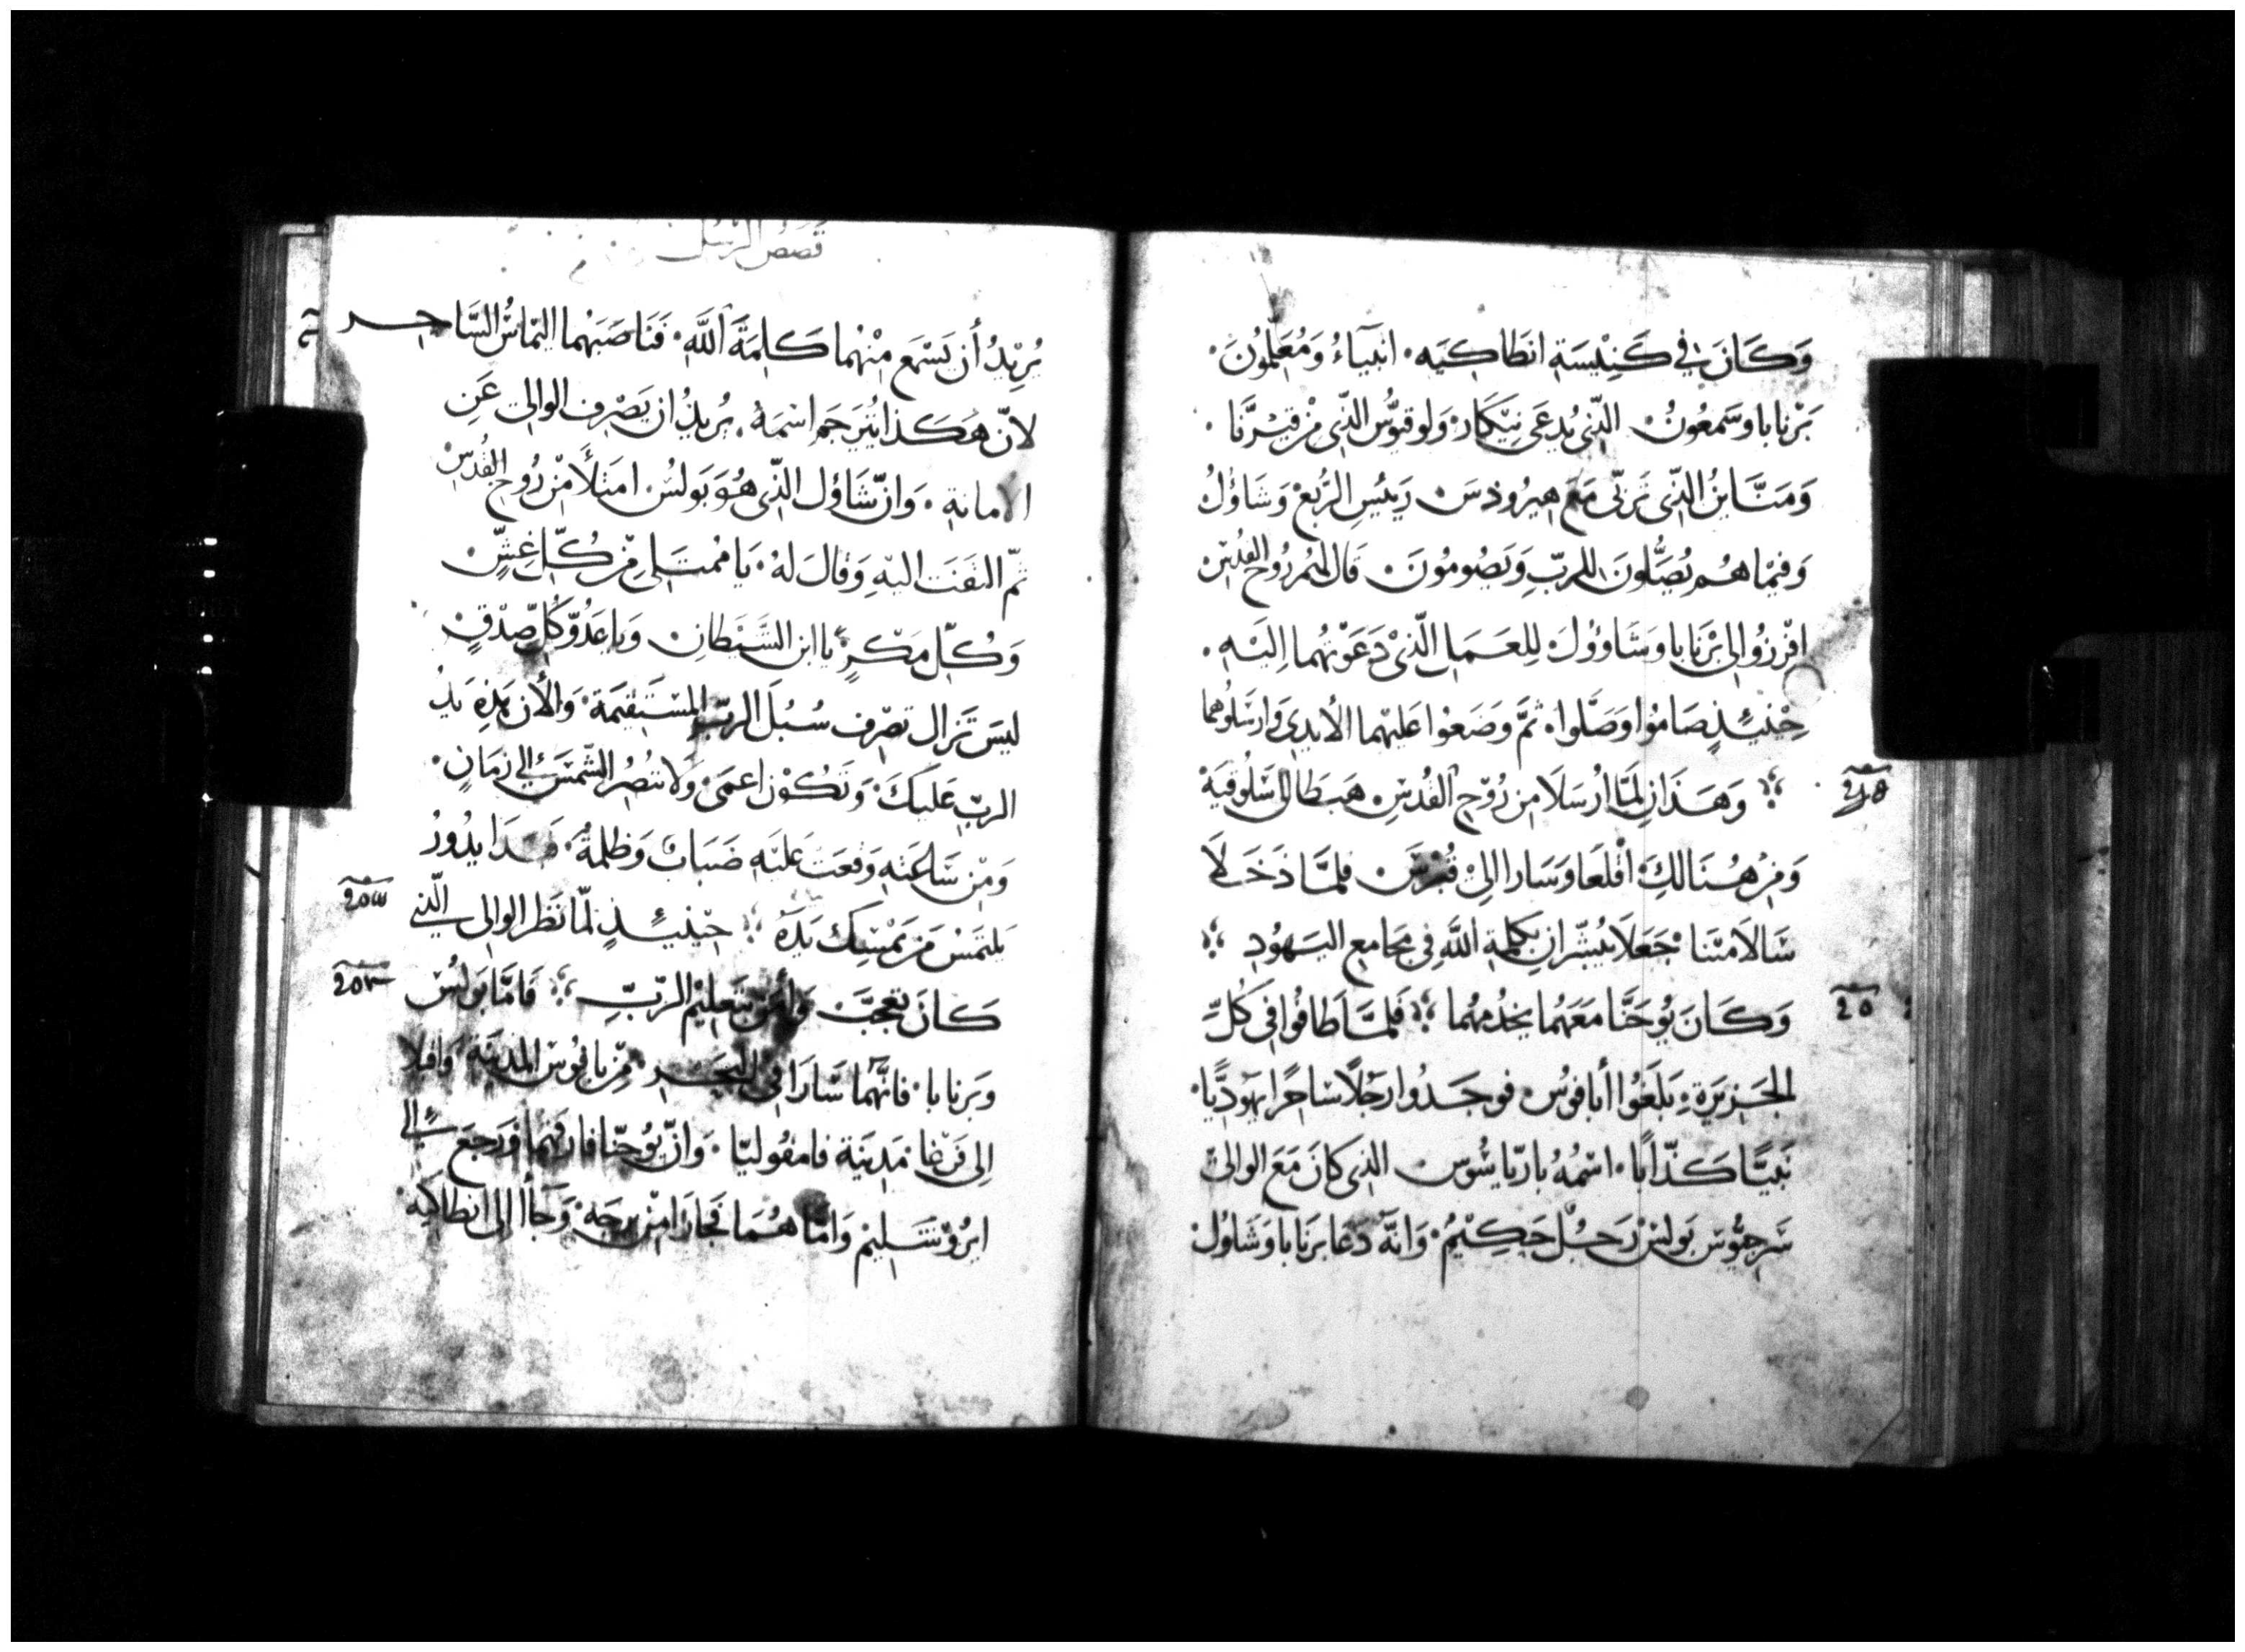 وَكَانَ فِي كَنِيْسَةِ انطَاكِيَه۰ انبيَاءُ وَمُعَلِّمُونَ۰
بَرْنابا وسَمعُونُ۰ الذّي يُدعَى نِيْكَار۰ ولوقيُوّس الذّي مِنْ قيْرِنَّا۰
وَمَنَّاينُ الذّي تَربّى مَعَ هيرُودسَ۰ رَئيْسِ الرَّبعْ وَشَاوُلُ
وَفيْما هُم يُصَّلونَ للربِّ وَيَصُومُونَ۰ قَالَ لهُمْ رُوحُ القُدُسِ
افْرزُوا لي بَرْنَابا وشَاوُولَ لِلعَمَلِ الّذيْ دَعَوتهُما اِليَهِ۰
حِيْنَئِذٍ صَامُوا وَصَلَّوا۰ ثمَّ وَضَعُوا عَليْهما الأَيدِيَ وَارسَلُوهما
وَهَذَانِ لَمَّا ارُسَلَا مِن رُوْحِ القُدْسِ هَبَطَا الى سَلُوقيَةْ
وَمِنْ هُنَالِكَ۰ اقْلعَا وَسَارا الىْ قُبْرسَ۰ فلمَّا دَخَلَا
سَالاَمتنَا۰ جَعَلَا يُبَشّرانِ بكلِمةِ اللَّهِ فِي مجَامِع اليَهُودِ
وَكَانَ يُوحَنَّا مَعَهُمَا يخدُمهُما فَلمَّا طَافُوا فِي كُلِّ
الجَزيرَةِ۰ بَلَغُوا أبافوسُ۰ فوجَدُوا رَجُلاً سَاحرًا يهَوديًّا۰
نَبيًّا كَذّابًا۰ اسْمُهُ بارّياشُوس۰ الذِي كانَ مَعَ الوالي
سَرجيُّوس بَولسْ رَجُلٌ حَكِيْمٌ۰ وَانَّه دَعَا بَرنَابا وَشَاوُل
قصَصُ الرسُل
يُرِيْدُ أن يَسْمَع مِنْهُما كَلِمَةَ اللَّهِ۰ فَنَاصَبَهُما اليمَاسُ السَّاحِر
لانّ هَكَذا يُتَرجَم اسْمَهُ۰ يُريدُ ان يَصْرِف الوَالي عَنِ
الامانةِ۰ وَانّ شَاوُل الذّي هُوَ بَولسُ۰ امتَلأَ مِنْ رُوحِ القُدسْ
ثمّ التفَتَ اليْهِ وَقالَ لهُ۰ يَا مُمتَلي مِنْ كُلّ غِشٍّ۰
وَكُلّ مَكرٍ۰ يا ابن الشَّيْطَانِ۰ وَيا عَدُوّ كُلّ صِدْقٍ۰
ليسَ تَزال تصْرِف سُبُلَ الربّ المُسْتَقيْمَة۰ وَالأن هَذِهِ يَدُ
الربّ عَليكَ۰ وَتَكُوْن اعمَى۰ وَلا تنصُرُ الشَّمْسَ الي زمَانٍ۰
وَمِنْ سَاعَتهِ وَقعَتْ عَليَهِ ضَبَابٌ وَظلمةٌ۰ يدُورُ
يَلتمَسْ مَن يَمْسِك يَدَهُ حِيْنَئِذٍ لمّا نَظر الوَالي الذي
كانَ تعجَّبَ وَأمَن بتَعلِيْم الربِّ فَامَّا بَولسُ
وَبَرنابا۰ فانَّهُمَا سَارَا في البَحر۰ مِن بافُوس المدينَة وَاقبلا
اِلى فَرْغَا۰ مَدينَة فامفُوليّا۰ وَانّ يُوحَنّا فارقهُما وَرَجَع الي
ايُرُوْشَلِيْم وَامَّا هُمَا فجَازَا مِنْ برجَه۰ وَجَاا الى انطاكيَه۰